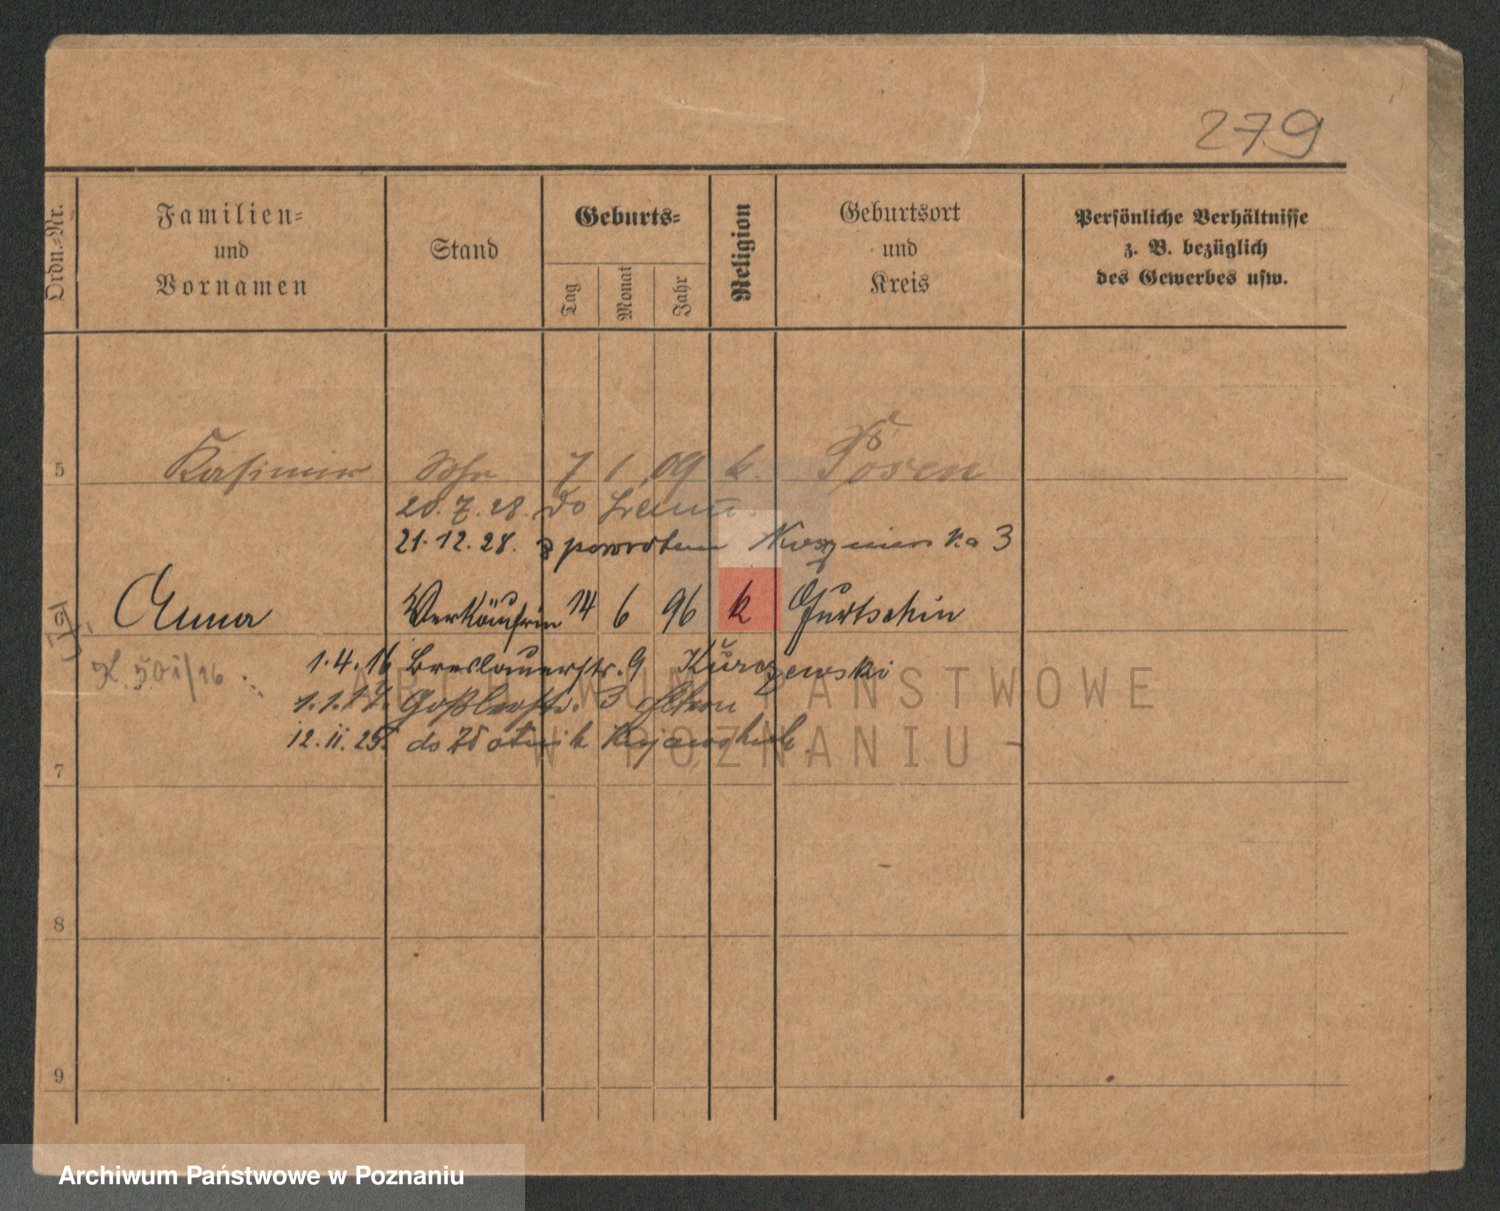 279
Ordn.-Nr.
Familien-
und
Vornamen
Stand
Geburts-
Tag
Monat
Jahr
Religion
Geburtsort
und
Kreis
Persönliche Verhältnisse
z. B. bezüglich
des Gewerbes usw.
5 Kasimir Sohn 7 1 09 k. Posen
20.7.28. do
21.12.28. z powrotem 3
Anna Verkäuferin 14 6 96 k Gurtschin
1.4.16 Breslauerstr. 9 Kurczewski
K 501/16
1.1.17. Goßlerstr. 3 Eltern
12.11.25. do Złotnik Kujawskich.
7
8
9
ARCHIWUM PAŃSTWOWE
W POZNANIU
Archiwum Państwowe w Poznaniu